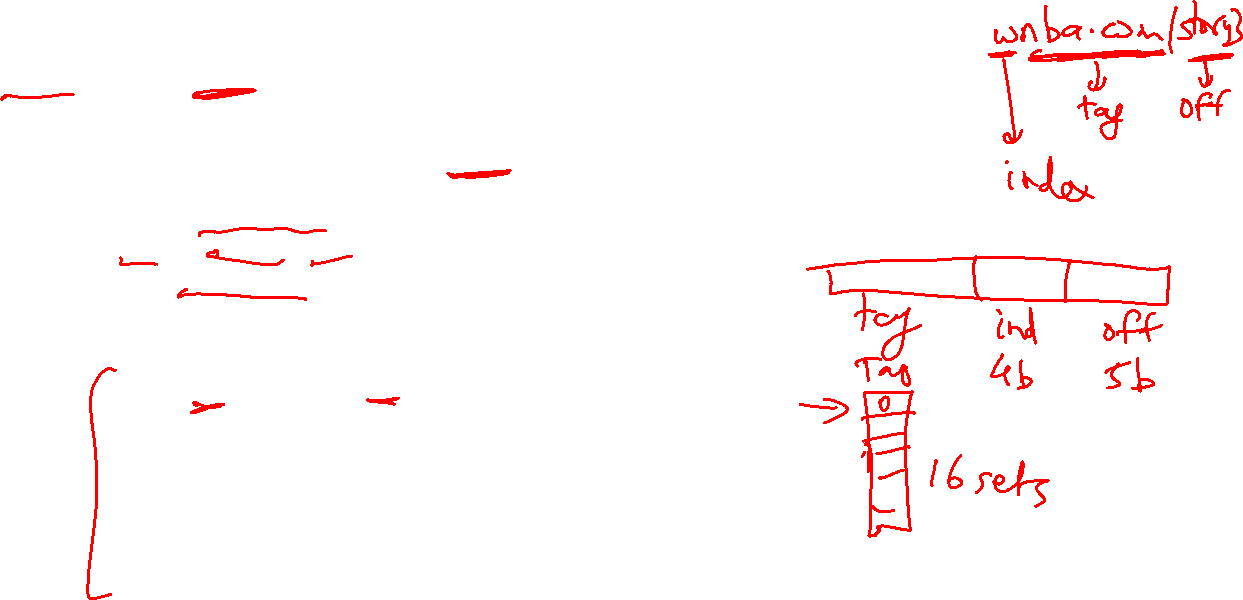 wnba.com/story3
tag off
index
tag ind off
Tag 4b 5b
0
16 sets